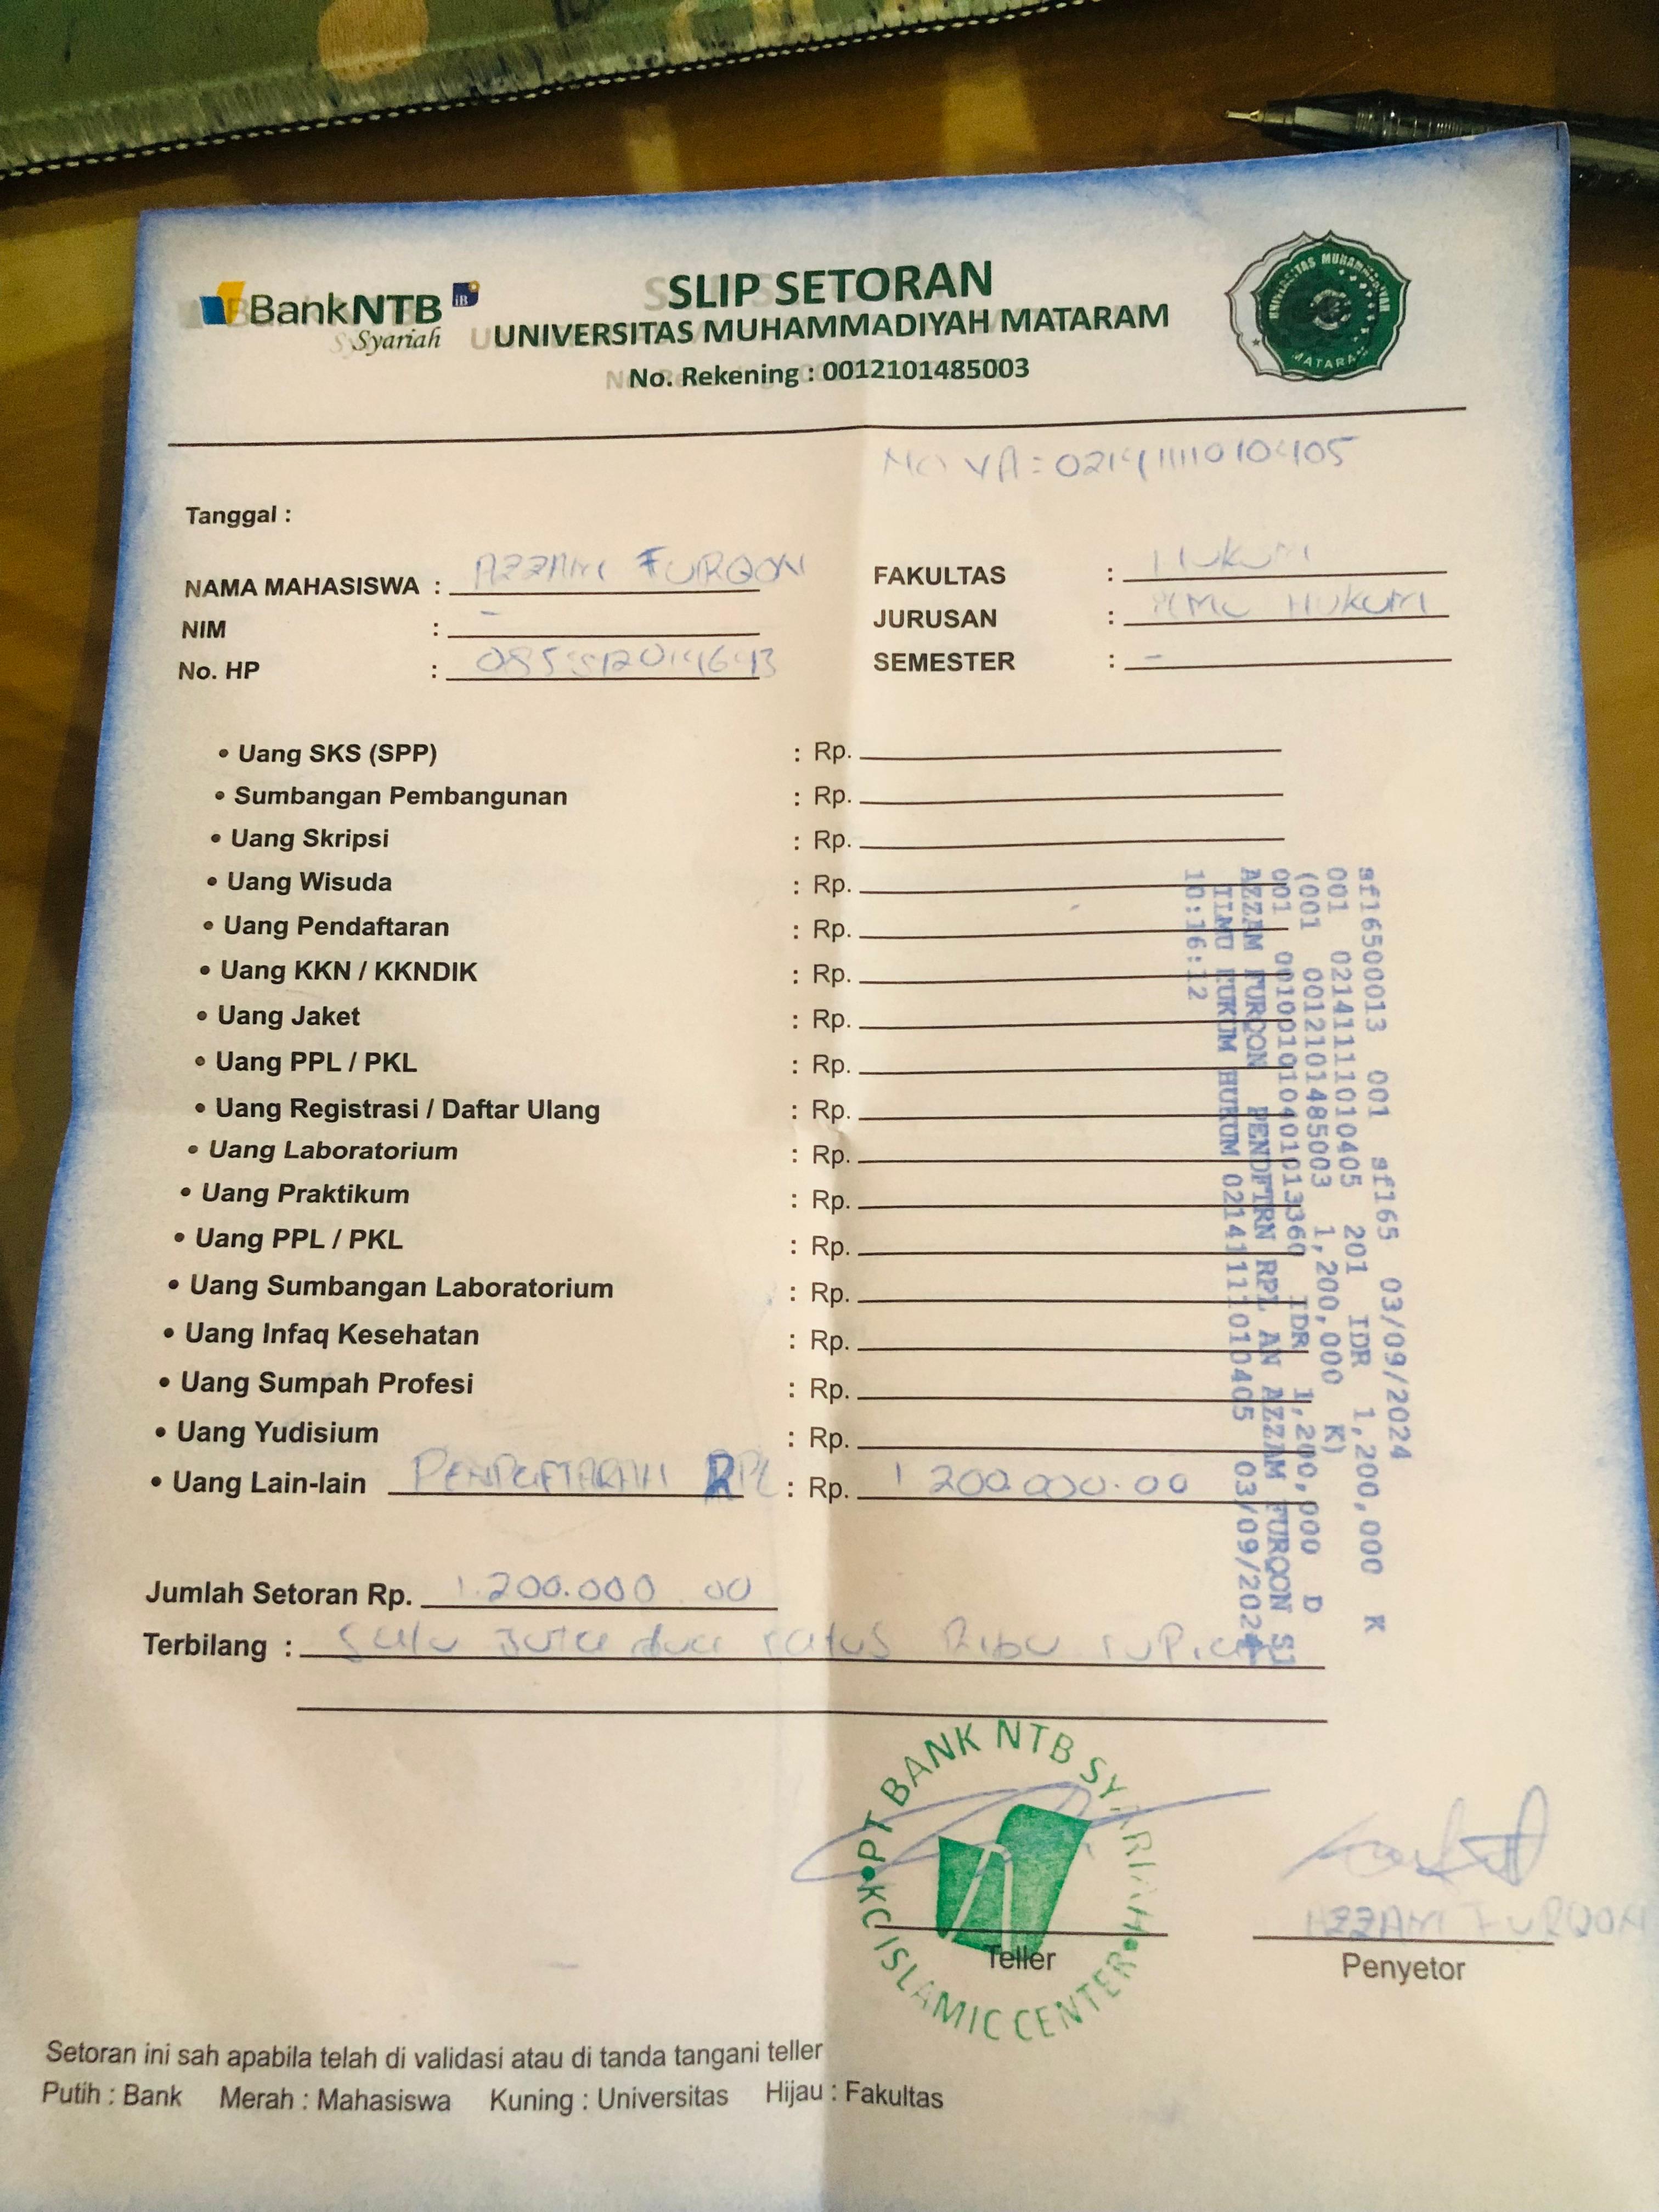 BankNTB
Syariah
SLIP SETORAN
UNIVERSITAS MUHAMMADIYAH MATARAM
No. Rekening : 0012101485003
UNIVERSITAS MUHAMMADIYAH
MATARAM
NO VA : 021411111010405
Tanggal :
NAMA MAHASISWA : AZZAM FURQON
NIM : -
No. HP :
FAKULTAS : Hukum
JURUSAN : ILMU HUKUM
SEMESTER : -
• Uang SKS (SPP) : Rp.
• Sumbangan Pembangunan : Rp.
• Uang Skripsi : Rp.
• Uang Wisuda : Rp.
• Uang Pendaftaran : Rp.
• Uang KKN / KKNDIK : Rp.
• Uang Jaket : Rp.
• Uang PPL / PKL : Rp.
• Uang Registrasi / Daftar Ulang : Rp.
• Uang Laboratorium : Rp.
• Uang Praktikum : Rp.
• Uang PPL / PKL : Rp.
• Uang Sumbangan Laboratorium : Rp.
• Uang Infaq Kesehatan : Rp.
• Uang Sumpah Profesi : Rp.
• Uang Yudisium : Rp.
• Uang Lain-lain PENDAFTARAN RPL : Rp. 1.200.000.00
Jumlah Setoran Rp. 1.200.000 00
Terbilang : Satu Juta dua ratus Ribu rupiah
sf16500013 001 sf165 03/09/2024
001 021411111010405 201 IDR 1,200,000 K
(001 0012101485003 1,200,000 K)
001 0010010104010133360 IDR 1,200,000 D
AZZAM FURQON PENDFTRN RPL AN AZZAM FURQON SJ
ILMU HUKUM HUKUM 021411111010405 03/09/2024
10:16:12
PT BANK NTB SYARIAH
KC ISLAMIC CENTER
Teller
AZZAM FURQON
Penyetor
Setoran ini sah apabila telah di validasi atau di tanda tangani teller
Putih : Bank Merah : Mahasiswa Kuning : Universitas Hijau : Fakultas